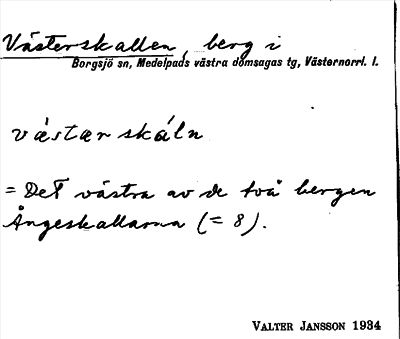 Västerskallen, berg i
Borgsjö sn, Medelpads västra domsagas tg, Västernorrl. l.
västær skáln
= Det västra av de två bergen
Ångeskallarna (= 8).
VALTER JANSSON 1934